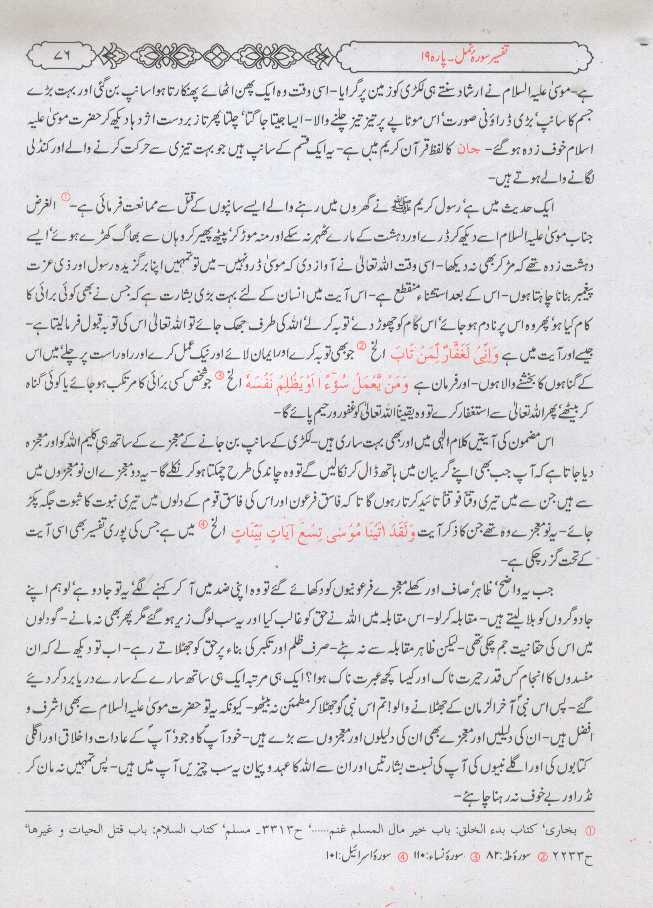 تفسیر سورۂ نمل۔ پارہ ۱۹
۷۶
ہے۔ موسیٰ علیہ السلام نے ارشاد سنتے ہی لکڑی کو زمین پر گرایا۔ اسی وقت وہ ایک پھن اٹھائے پھنکارتا ہوا سانپ بن گئی اور بہت بڑے
جسم کا سانپ' بڑی ڈراؤنی صورت' اس موٹاپے پر تیز تیز چلنے والا۔ ایسا جیتا جاگتا' چلتا پھرتا زبردست اژدہا دیکھ کر حضرت موسیٰ علیہ
السلام خوف زدہ ہو گئے۔ جان کا لفظ قرآن کریم میں ہے۔ یہ ایک قسم کے سانپ ہیں جو بہت تیزی سے حرکت کرنے والے اور کنڈلی
لگانے والے ہوتے ہیں۔
ایک حدیث میں ہے' رسول کریم ﷺ نے گھروں میں رہنے والے ایسے سانپوں کے قتل سے ممانعت فرمائی ہے۔ ① الغرض
جناب موسیٰ علیہ السلام اسے دیکھ کر ڈرے اور دہشت کے مارے ٹھہر نہ سکے اور منہ موڑ کر پیٹھ پھیر کر وہاں سے بھاگ کھڑے ہوئے' ایسے
دہشت زدہ تھے کہ مڑ کر بھی نہ دیکھا۔ اسی وقت اللہ تعالیٰ نے آواز دی کہ موسیٰ ڈرو نہیں۔ میں تو تمہیں اپنا برگزیدہ رسول اور ذی عزت
پیغمبر بنانا چاہتا ہوں۔ اس کے بعد استثناء منقطع ہے۔ اس آیت میں انسان کے لئے بہت بڑی بشارت ہے کہ جس نے بھی کوئی برائی کا
کام کیا ہو' پھر وہ اس پر نادم ہو جائے' اس کام کو چھوڑ دے' توبہ کر لے' اللہ کی طرف جھک جائے تو اللہ تعالیٰ اس کی توبہ قبول فرما لیتا ہے۔
جیسے اور آیت میں ہے وَاِنِّیْ لَغَفَّارٌ لِّمَنْ تَابَ الخ ② جو بھی توبہ کرے اور ایمان لائے اور نیک عمل کرے اور راہ راست پر چلے' میں اس
کے گناہوں کا بخشنے والا ہوں۔ اور فرمان ہے وَمَنْ یَّعْمَلْ سُوْٓءًا اَوْیَظْلِمْ نَفْسَهٗ الخ ③ جو شخص کسی برائی کا مرتکب ہو جائے یا کوئی گناہ
کر بیٹھے' پھر اللہ تعالیٰ سے استغفار کرے تو وہ یقیناً اللہ تعالیٰ کو غفور و رحیم پائے گا۔
اس مضمون کی آیتیں کلام الٰہی میں اور بھی بہت ساری ہیں۔ لکڑی کے سانپ بن جانے کے معجزے کے ساتھ ہی کلیم اللہ کو اور معجزہ
دیا جاتا ہے کہ آپ جب بھی اپنے گریبان میں ہاتھ ڈال کر نکالیں گے تو وہ چاند کی طرح چمکتا ہوا نکلے گا۔ یہ دو معجزے ان نو معجزوں میں
سے ہیں جن سے میں تیری وقتاً فوقتاً تائید کرتا رہوں گا تا کہ فاسق فرعون اور اس کی فاسق قوم کے دلوں میں تیری نبوت کا ثبوت جگہ پکڑ
جائے۔ یہ نو معجزے وہ تھے جن کا ذکر آیت وَلَقَدْ اٰتَیْنَا مُوْسٰی تِسْعَ اٰیَاتٍ بَیِّنَاتٍ الخ ④ میں ہے جس کی پوری تفسیر بھی اسی آیت
کے تحت گزر چکی ہے۔
جب یہ واضح' ظاہر' صاف اور کھلے معجزے فرعونیوں کو دکھائے گئے تو وہ اپنی ضد میں آ کر کہنے لگے' یہ تو جادو ہے' لو ہم اپنے
جادوگروں کو بلا لیتے ہیں۔ مقابلہ کر لو۔ اس مقابلہ میں اللہ نے حق کو غالب کیا اور یہ سب لوگ زیر ہو گئے مگر پھر بھی نہ مانے۔ گو دلوں
میں اس کی حقانیت جم چکی تھی۔ لیکن ظاہر مقابلہ سے نہ ہٹے۔ صرف ظلم اور تکبر کی بناء پر حق کو جھٹلاتے رہے۔ اب تو دیکھ لے کہ ان
مفسدوں کا انجام کس قدر حیرت ناک اور کیسا کچھ عبرت ناک ہوا؟ ایک ہی مرتبہ ایک ہی ساتھ سارے کے سارے دریا برد کر دیئے
گئے۔ پس اس نبی آخر الزمان کے جھٹلانے والو! تم اس نبی کو جھٹلا کر مطمئن نہ بیٹھو۔ کیونکہ یہ تو حضرت موسیٰ علیہ السلام سے بھی اشرف و
افضل ہیں۔ ان کی دلیلیں اور معجزے بھی ان کی دلیلوں اور معجزوں سے بڑے ہیں۔ خود آپ کا وجود' آپ کے عادات و اخلاق اور اگلی
کتابوں کی اور اگلے نبیوں کی آپ کی نسبت بشارتیں اور ان سے اللہ کا عہد و پیمان یہ سب چیزیں آپ میں ہیں۔ پس تمہیں نہ مان کر
نڈر اور بے خوف نہ رہنا چاہئے۔
① بخاری' کتاب بدء الخلق: باب خیر مال المسلم غنم......' ح۳۳۱۳۔ مسلم' کتاب السلام: باب قتل الحیات و غیرھا'
ح۲۲۳۳ ② سورۂ طہ: ۸۲ ③ سورۂ نساء: ۱۱۰ ④ سورۂ اسرائیل: ۱۰۱